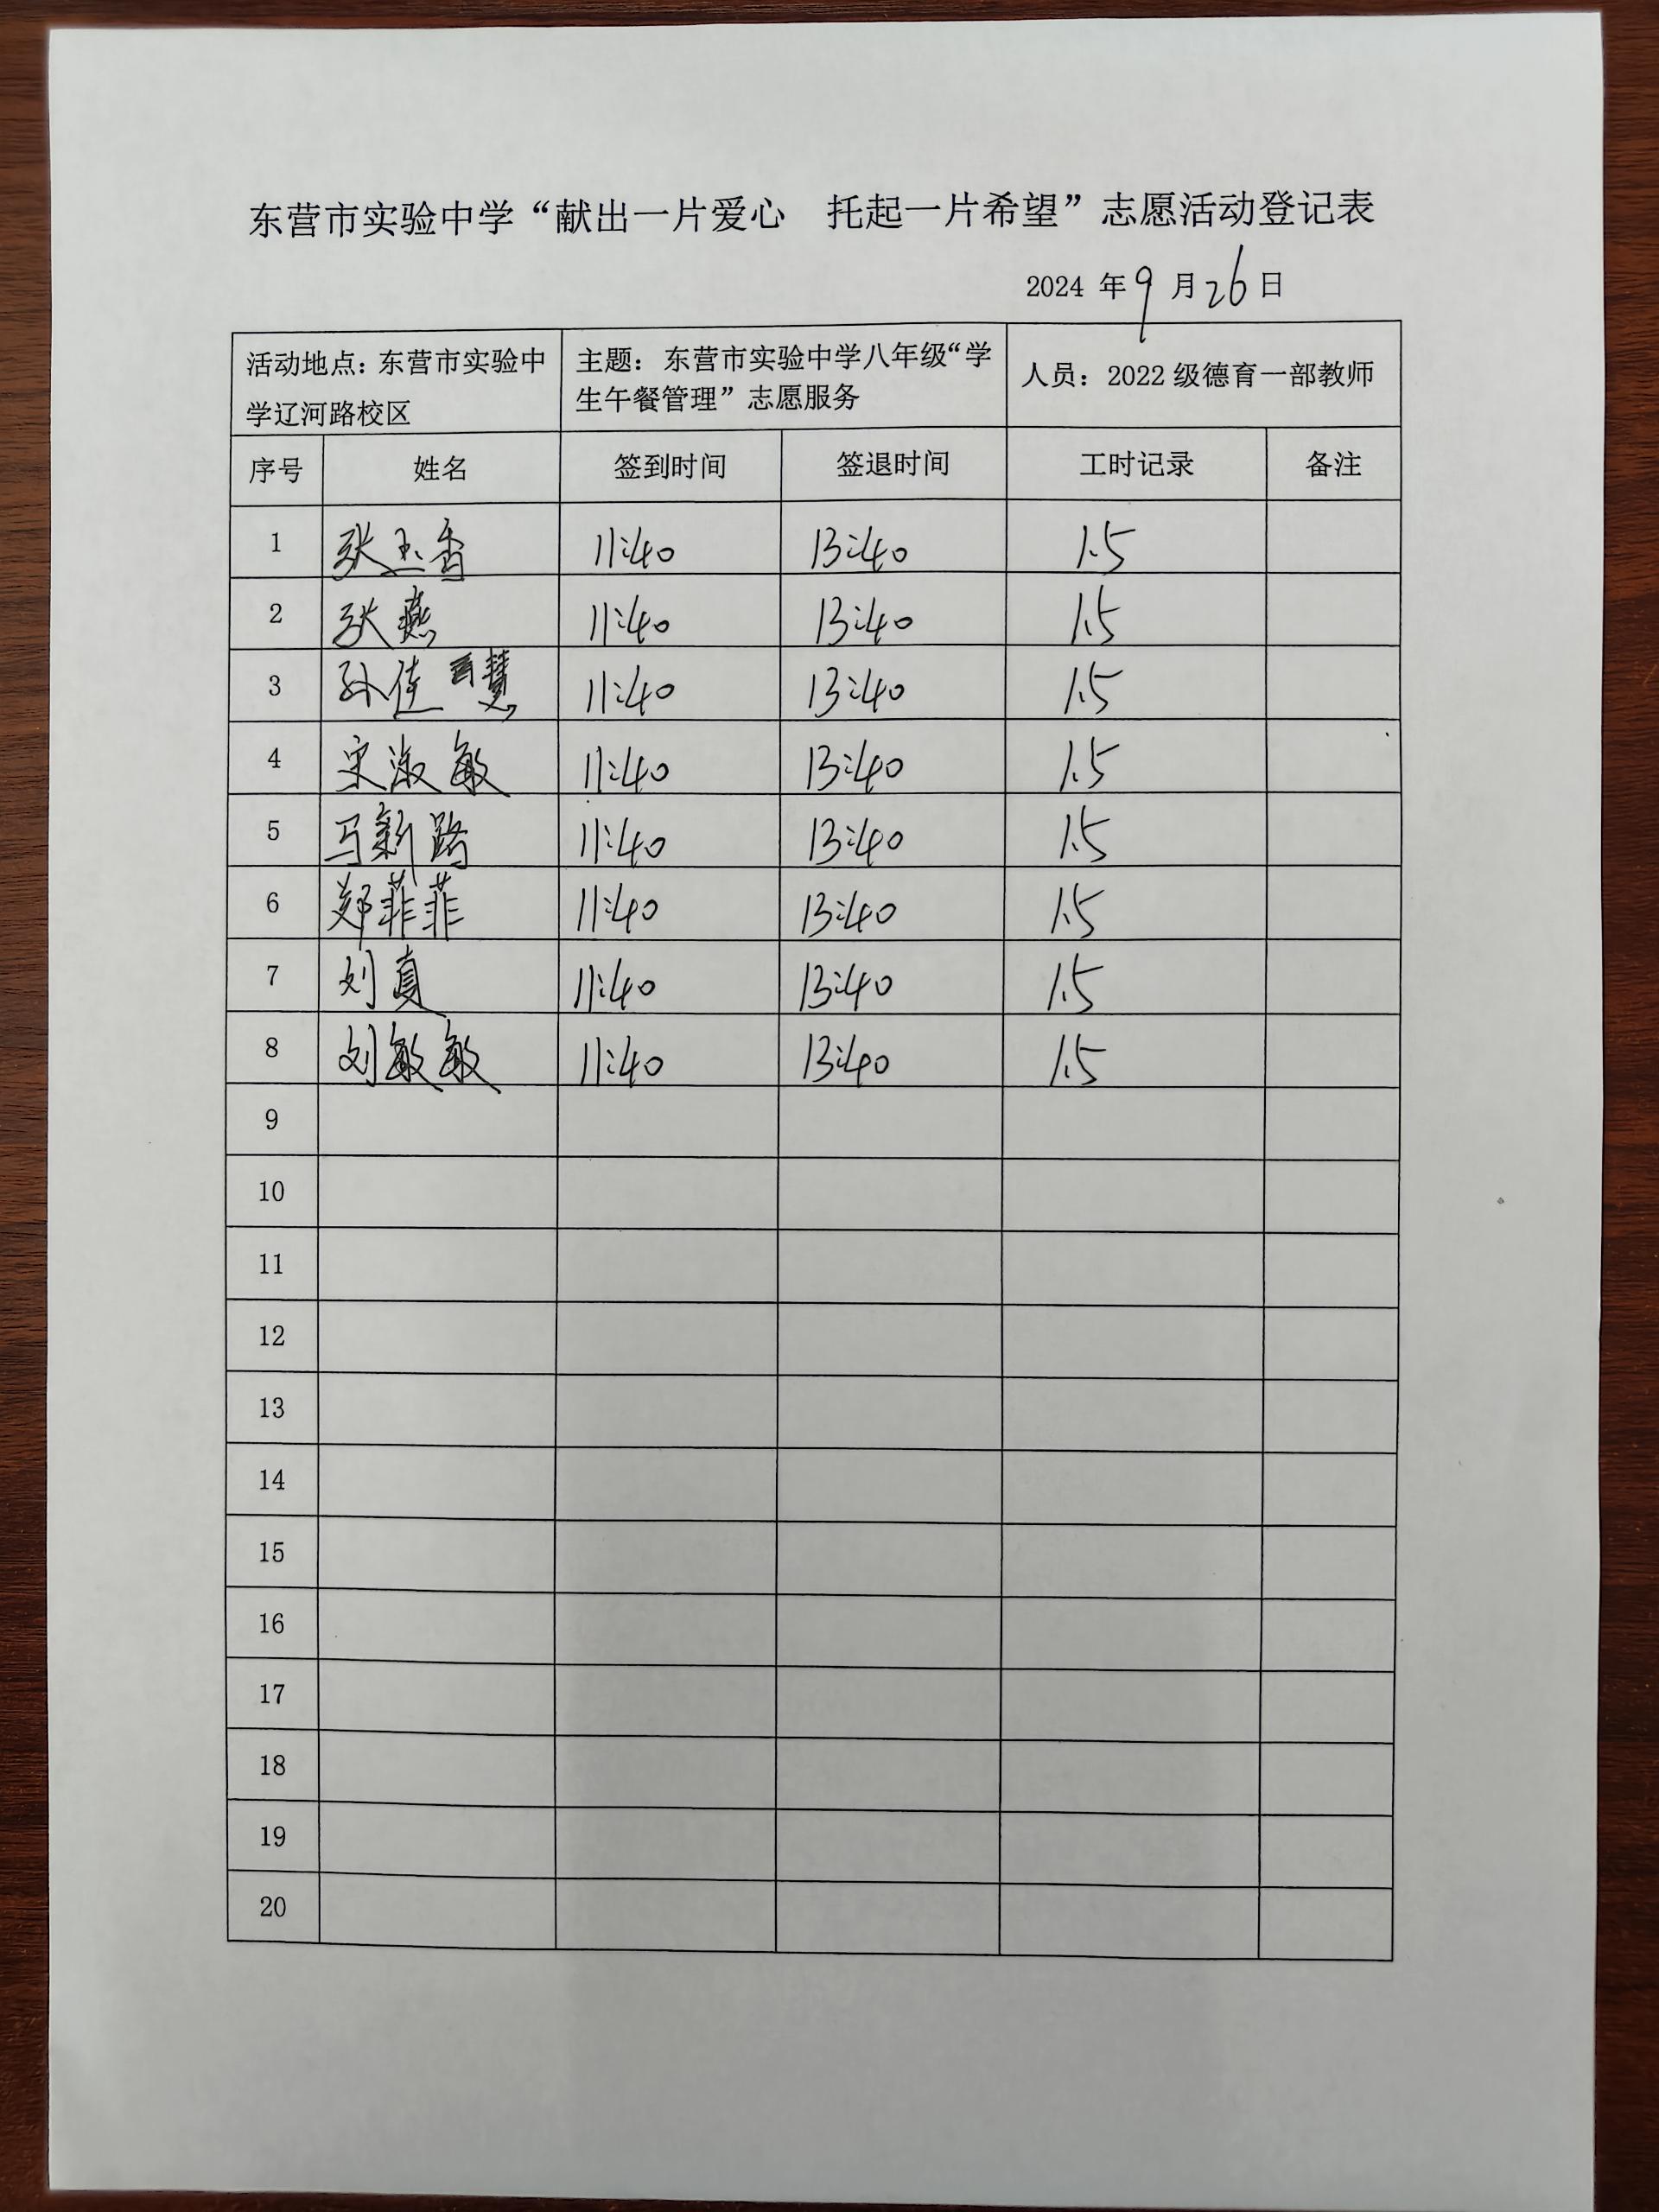 东营市实验中学“献出一片爱心 托起一片希望”志愿活动登记表
2024 年 9 月 26 日
活动地点：东营市实验中学辽河路校区 主题：东营市实验中学八年级“学生午餐管理”志愿服务 人员：2022 级德育一部教师
序号 姓名 签到时间 签退时间 工时记录 备注
1 张玉香 11:40 13:40 1.5
2 张燕 11:40 13:40 1.5
3 孙连慧 11:40 13:40 1.5
4 宋淑敏 11:40 13:40 1.5
5 马新路 11:40 13:40 1.5
6 郑菲菲 11:40 13:40 1.5
7 刘真 11:40 13:40 1.5
8 刘敏敏 11:40 13:40 1.5
9
10
11
12
13
14
15
16
17
18
19
20